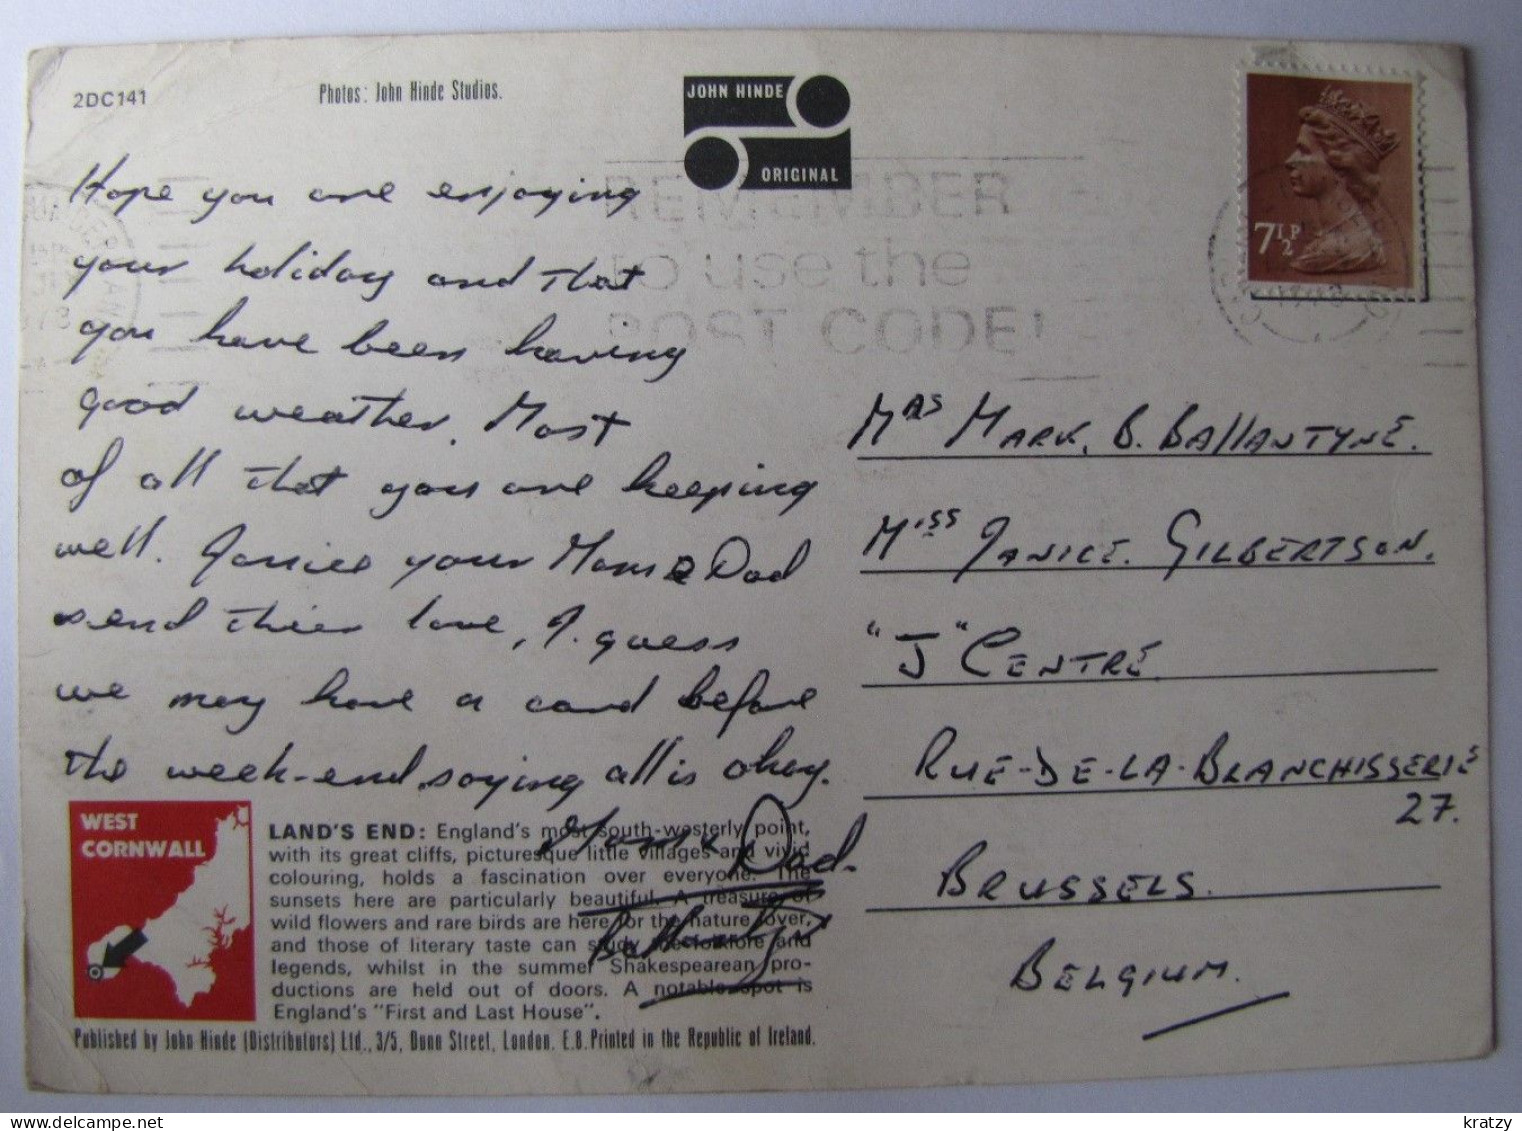 2DC141
Photos: John Hinde Studios.
JOHN HINDE
ORIGINAL
REMEMBER
to use the
POST CODE!
7½P
Hope you are enjoying
your holiday and that
you have been having
good weather. Most
of all that you are keeping
well. Janice your Mom & Dad
send thier love, I guess
we may have a card before
the week-end saying all is okay.
Mom & Dad.
Ballantyne
Mrs Mark. B. Ballantyne.
Miss Janice. Gilbertson.
"J" Centre
Rue-de-la-Branchisserie
27.
Brussels.
Belgium.
WEST
CORNWALL
LAND'S END: England's most south-westerly point,
with its great cliffs, picturesque little villages and vivid
colouring, holds a fascination over everyone. The
sunsets here are particularly beautiful. A treasure of
wild flowers and rare birds are here for the nature lover,
and those of literary taste can study the folklore and
legends, whilst in the summer Shakespearean pro-
ductions are held out of doors. A notable spot is
England's "First and Last House".
Published by John Hinde (Distributors) Ltd., 3/5, Dunn Street, London. E.8. Printed in the Republic of Ireland.
kratzy
delcampe.net